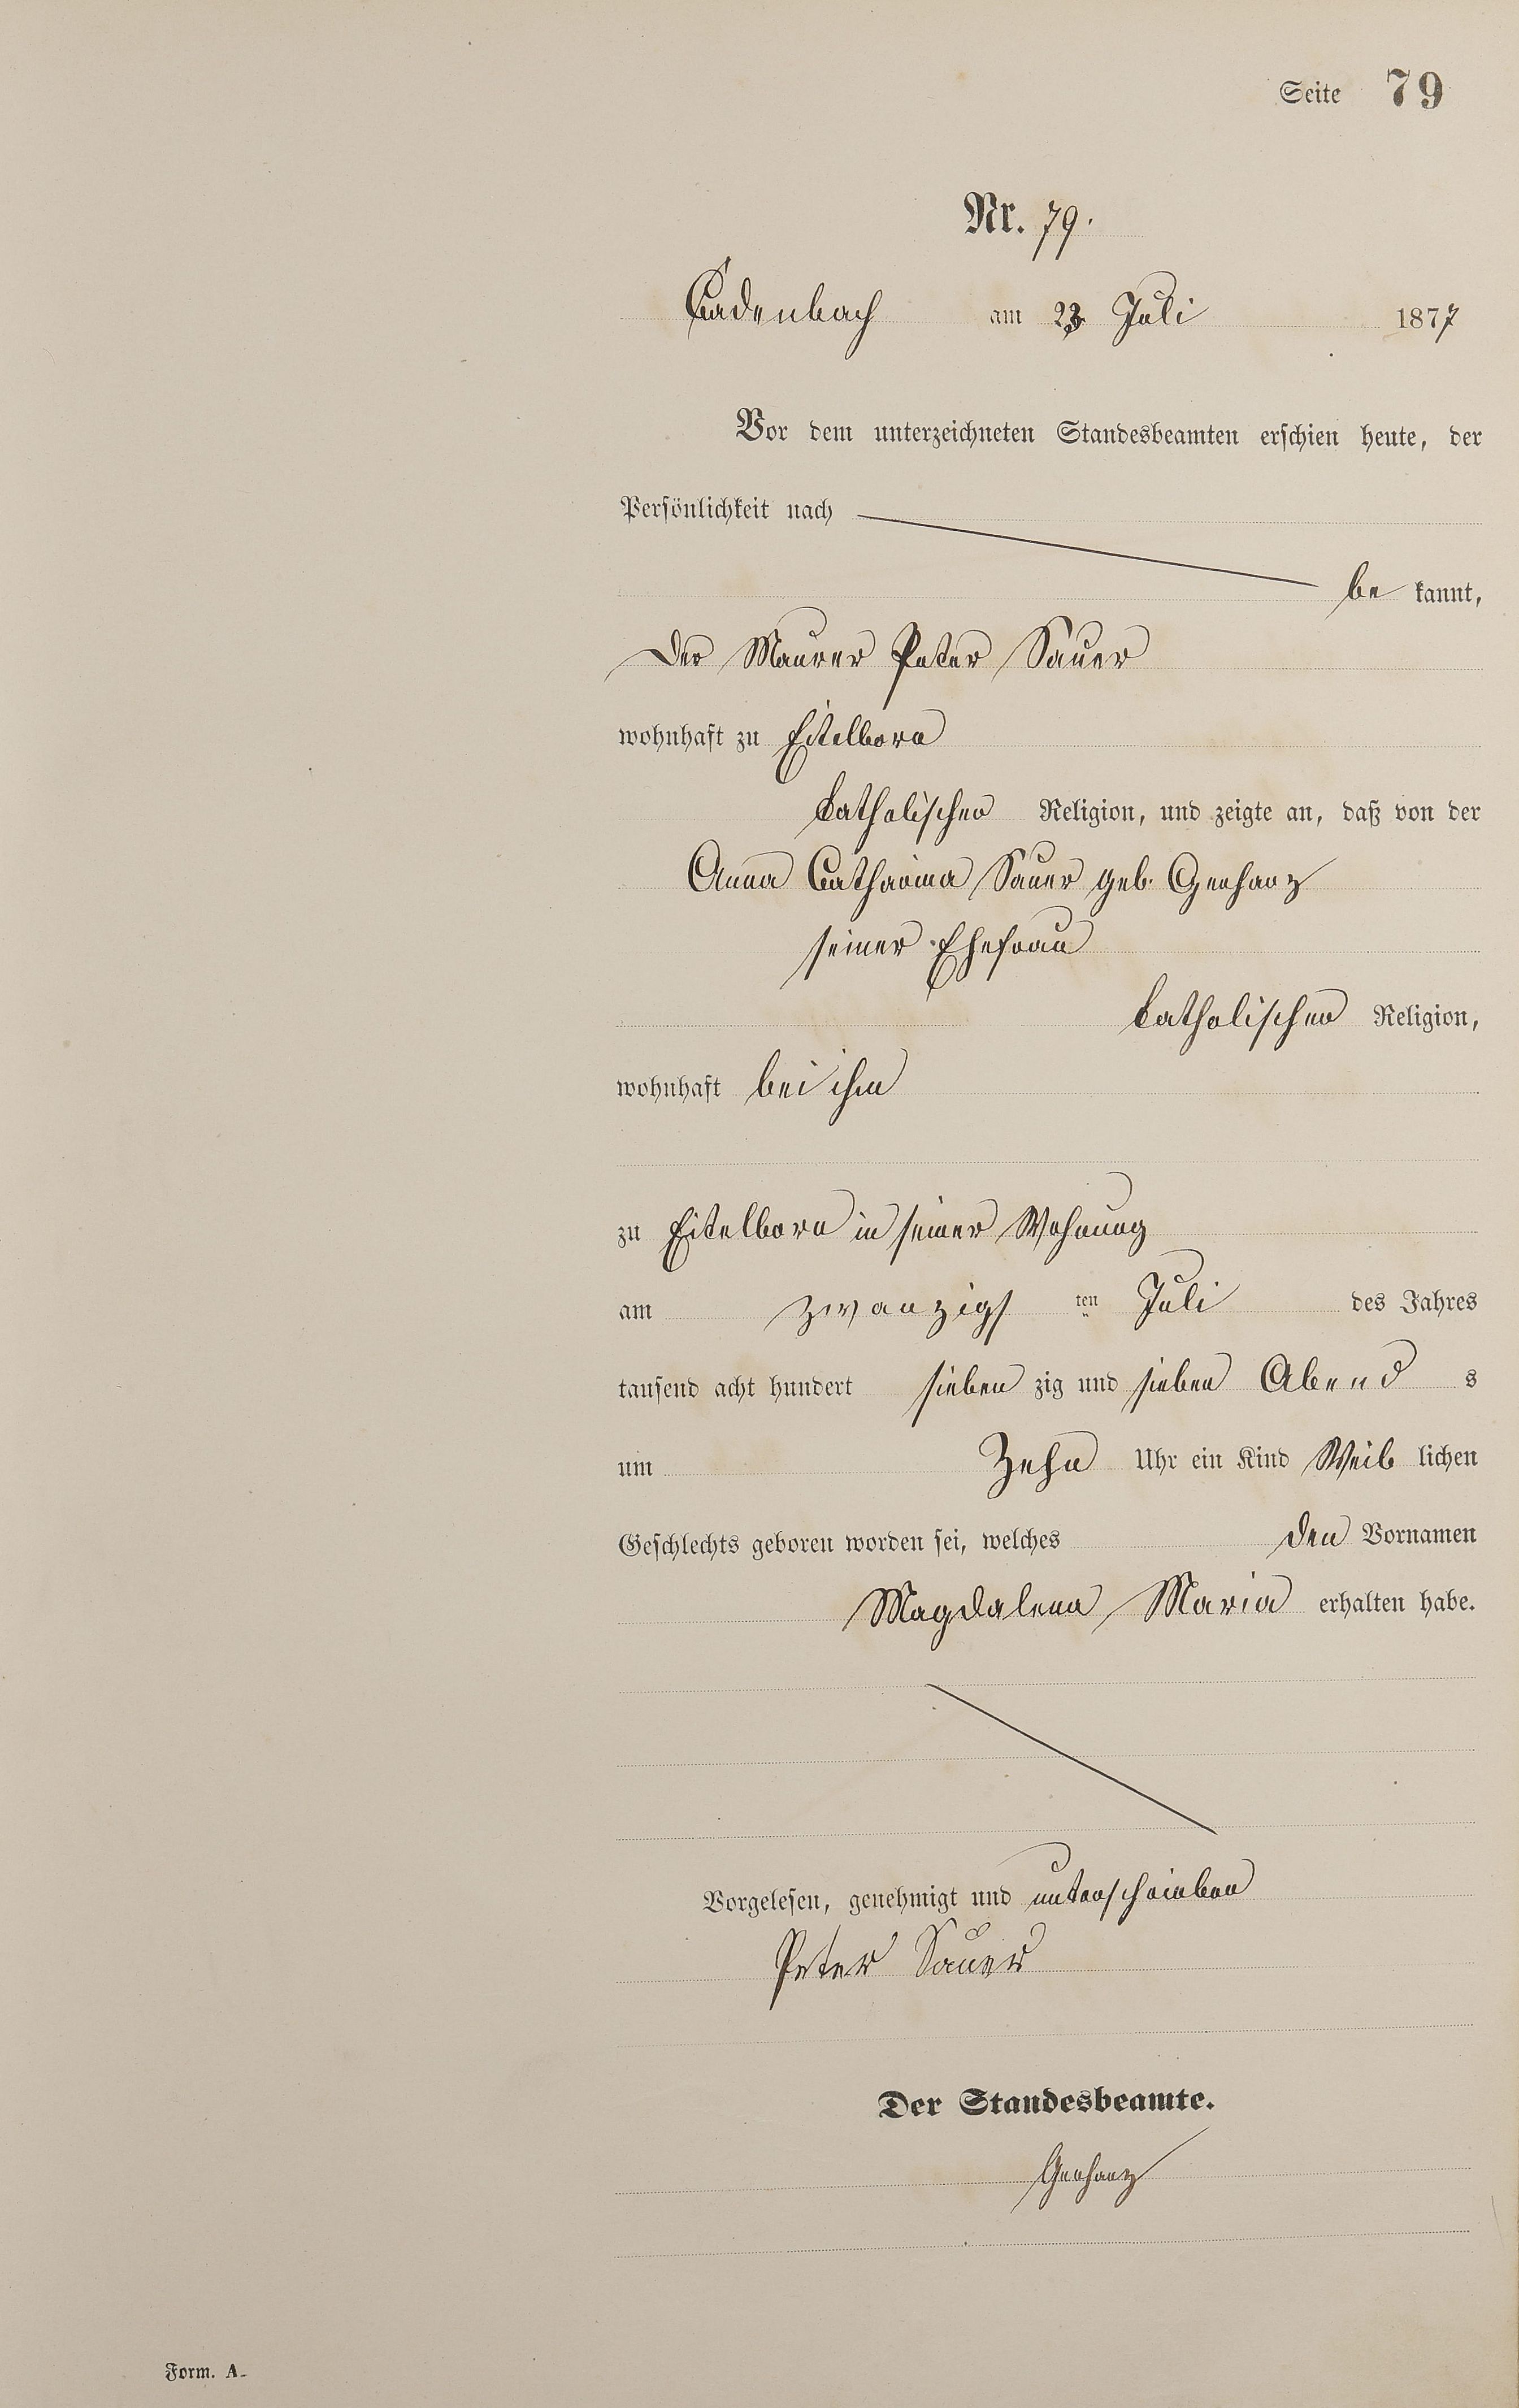 Seite 79
Nr. 79.
Cadenbach am 23 Juli 1877
Vor dem unterzeichneten Standesbeamten erschien heute, der
Persönlichkeit nach
be kannt,
Der Maurer Peter Sauer
wohnhaft zu Eitelborn
katholischer Religion, und zeigte an, daß von der
Anna Catharina Sauer geb. Gerharz
seiner Ehefrau
katholischer Religion,
wohnhaft bei ihm
zu Eitelborn in seiner Wohnung
am zwanzigs ten Juli des Jahres
tausend acht hundert sieben zig und sieben Abend s
um Zehn Uhr ein Kind Weib lichen
Geschlechts geboren worden sei, welches den Vornamen
Magdalena Maria erhalten habe.
Vorgelesen, genehmigt und unterschrieben
Peter Sauer
Der Standesbeamte.
Gerharz
Form. A.